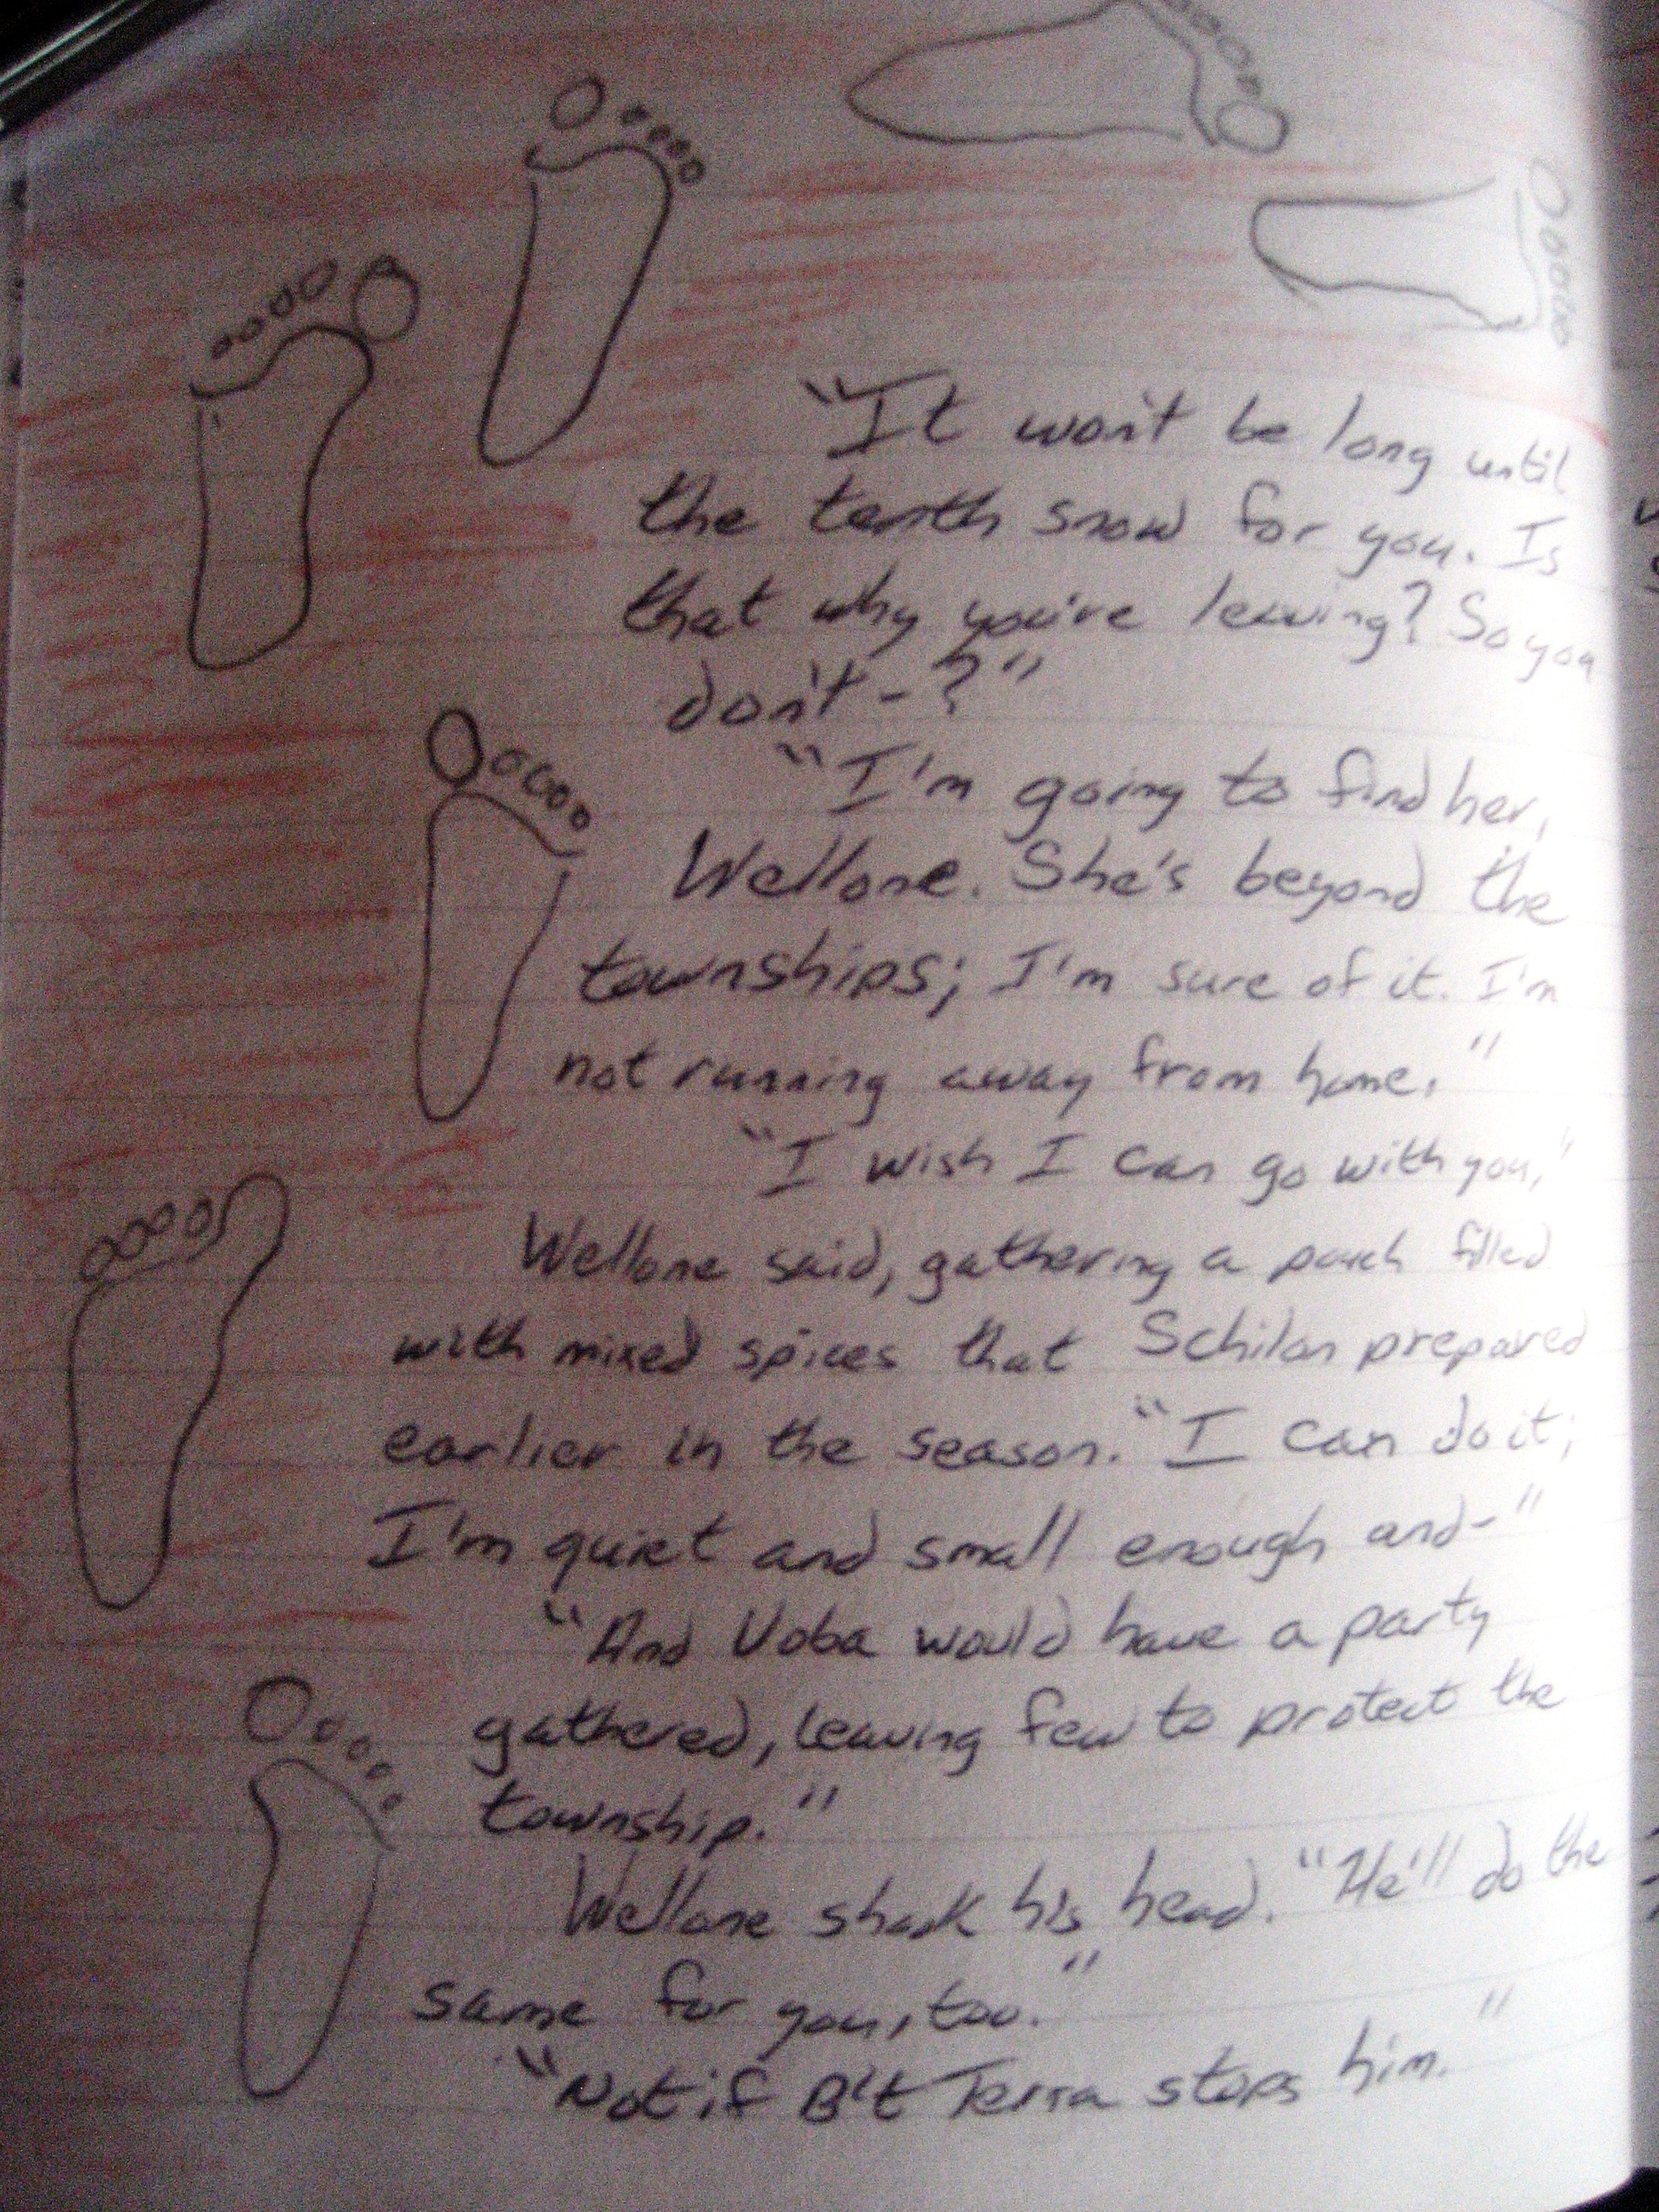 "It won't be long until
the tenth snow for you. Is
that why you're leaving? So you
don't - ?"
"I'm going to find her,
Wellone. She's beyond the
townships; I'm sure of it. I'm
not running away from home."
"I wish I can go with you,"
Wellone said, gathering a pouch filled
with mixed spices that Schilan prepared
earlier in the season. "I can do it;
I'm quiet and small enough and-"
"And Voba would have a party
gathered, leaving few to protect the
township."
Wellone shook his head. "He'll do the
same for you, too."
"Not if B't Terra stops him."